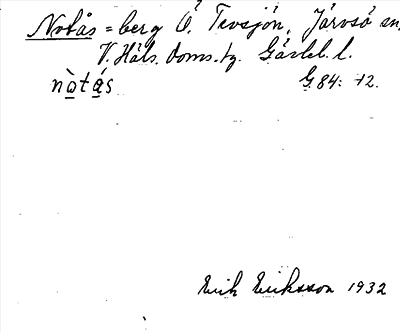 Notås = berg Ö. Tevsjön, Järvsö sn,
V. Häls. doms. tg. Gävleb. l.
nò̱tá̱s G 84: 12.
Erik Eriksson 1932